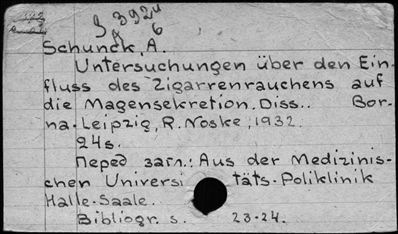 S 3924
6
Schunck, A.
Untersuchungen über den Ein-
fluss des Zigarrenrauchens auf
die Magensekretion. Diss.. Bor-
na-Leipzig, R. Noske, 1932.
24s.
Перед загл.: Aus der Medizinis-
chen Universitäts-Poliklinik
Halle-Saale.
Bibliogr. s. 23-24.